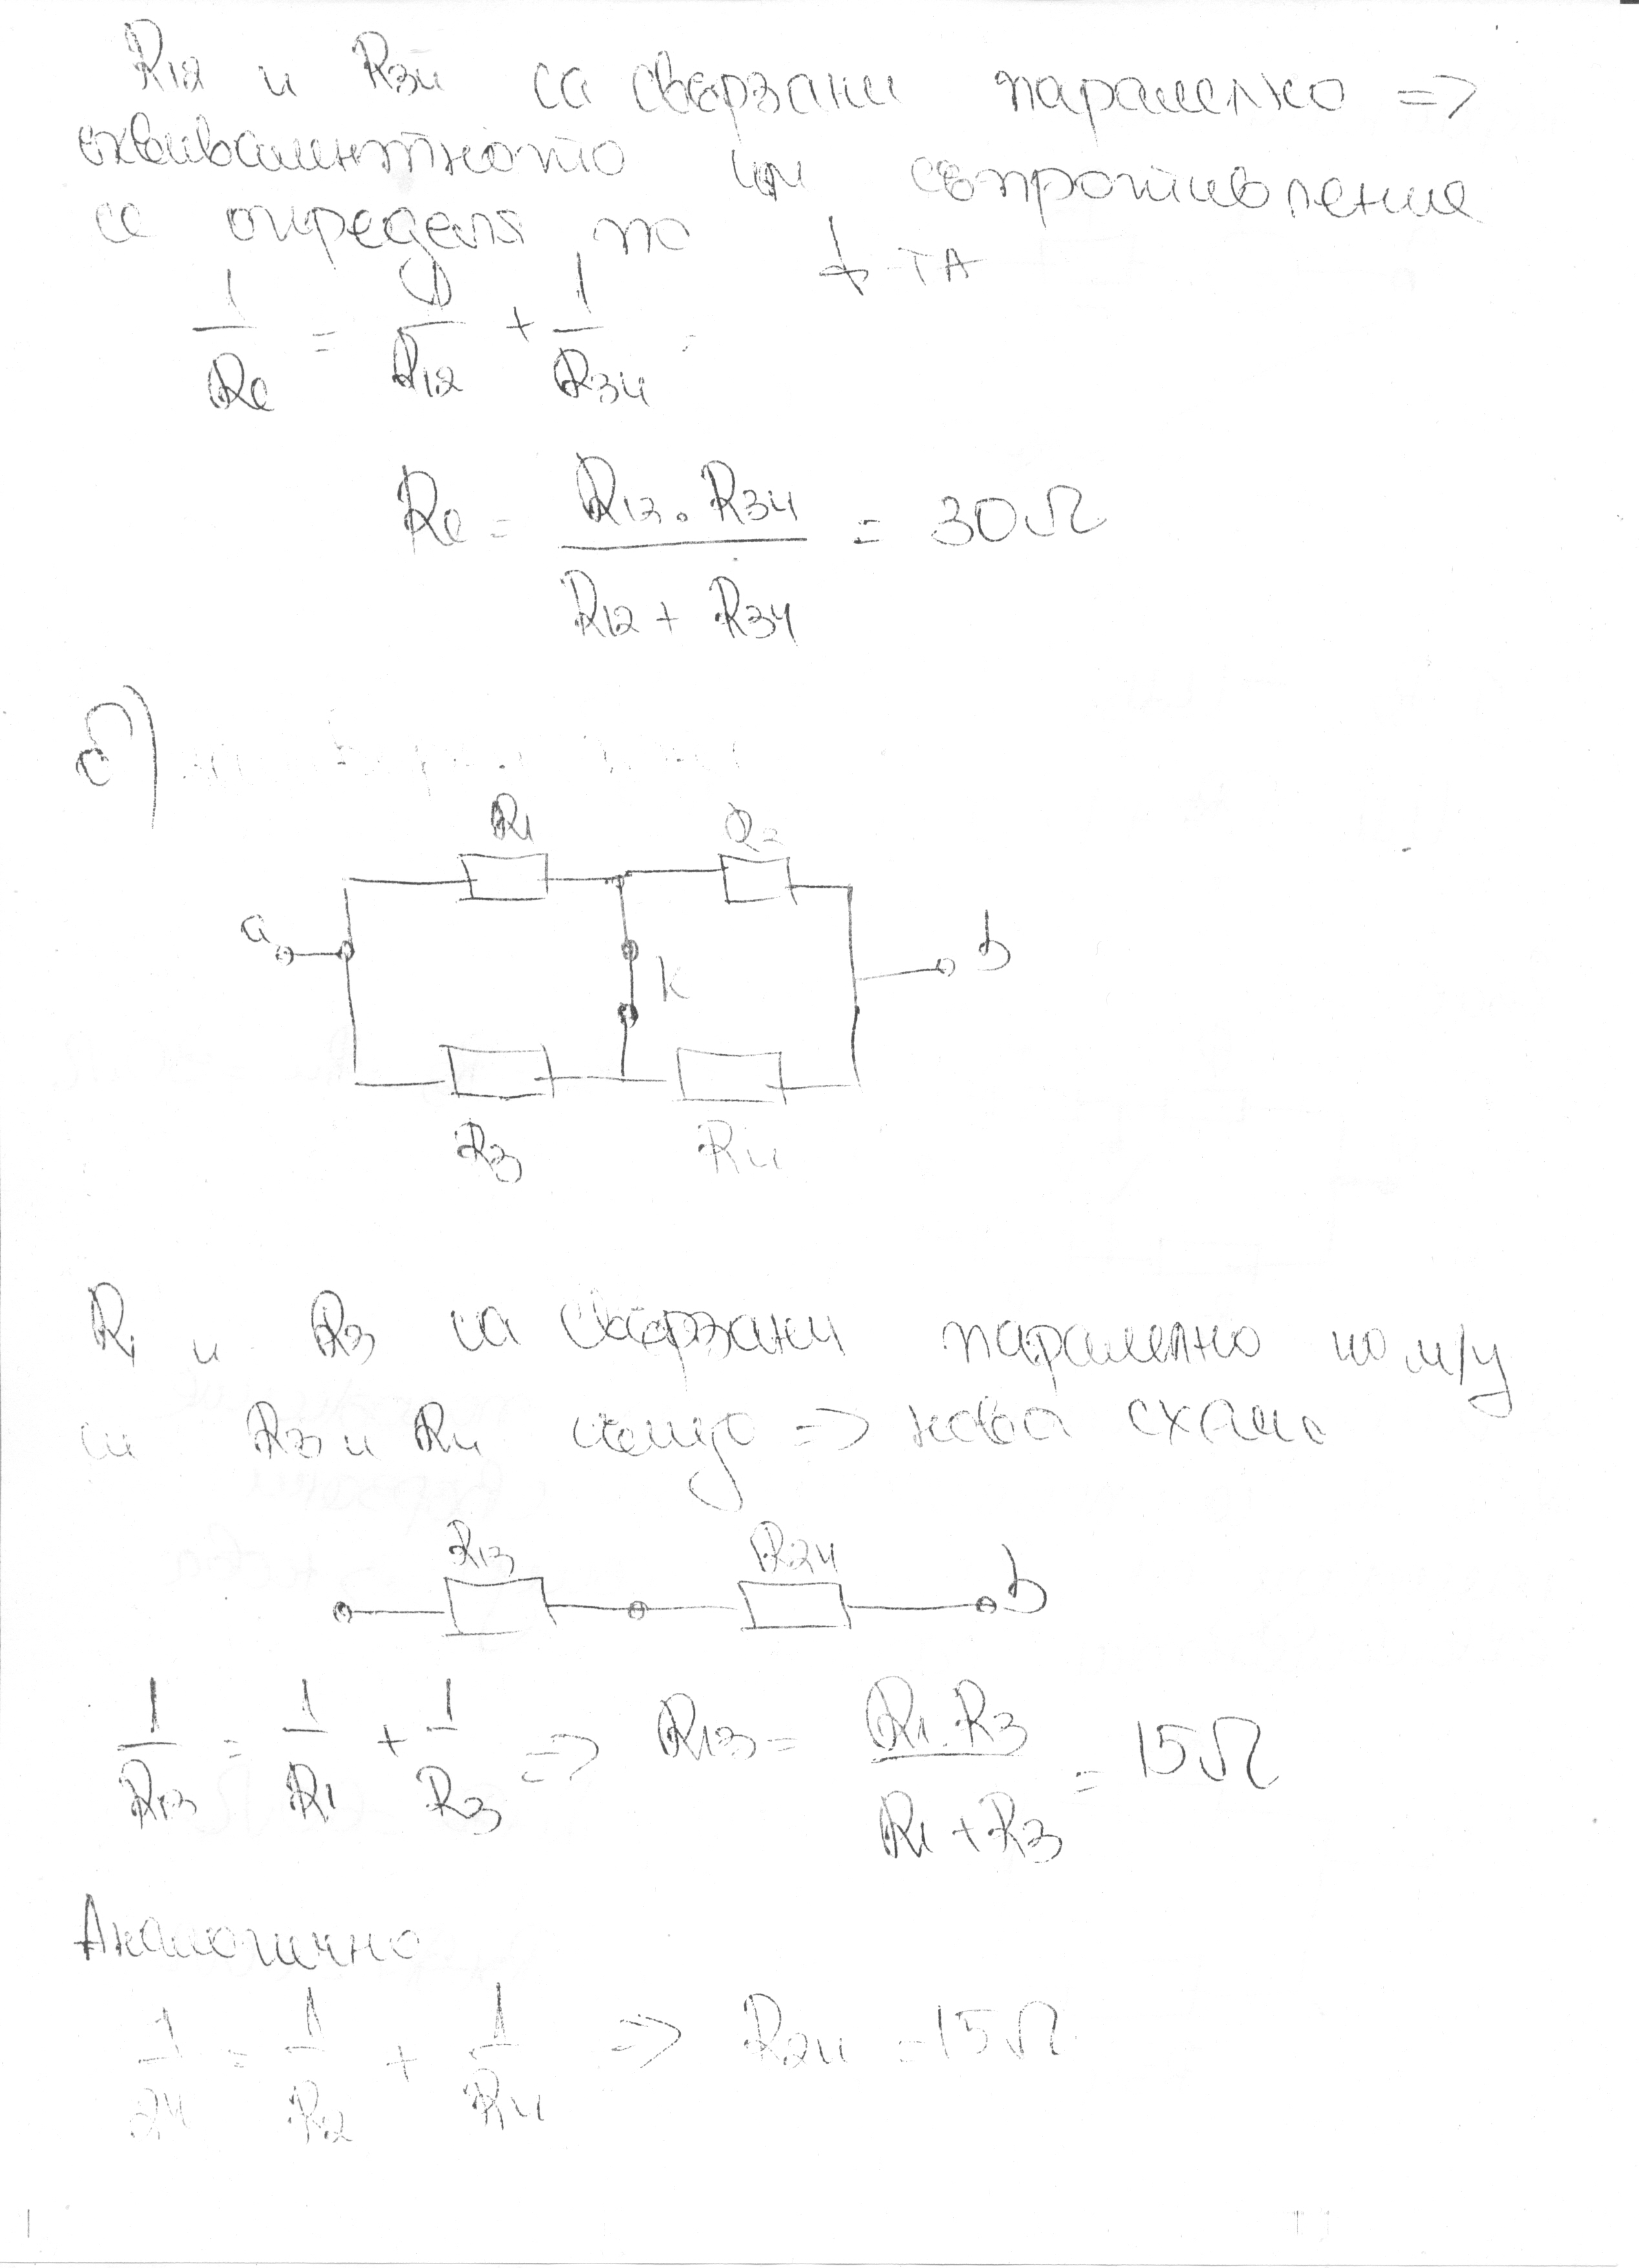 R12 и R34 са свързани паралелно =>
еквивалентното им съпротивление
се определя по ф-та
1/Re = 1/R12 + 1/R34
Re = R12 . R34 / R12 + R34 = 30Ω
б)
R1 R2
a b
K
R3 R4
R1 и R3 са свързани паралелно по м/у
си R3 и R4 също => нова схема
R13 R24
b
1/R13 = 1/R1 + 1/R3 => R13 = R1 . R3 / R1 + R3 = 15Ω
Аналогично
1/24 = 1/R2 + 1/R4 => R24 = 15Ω